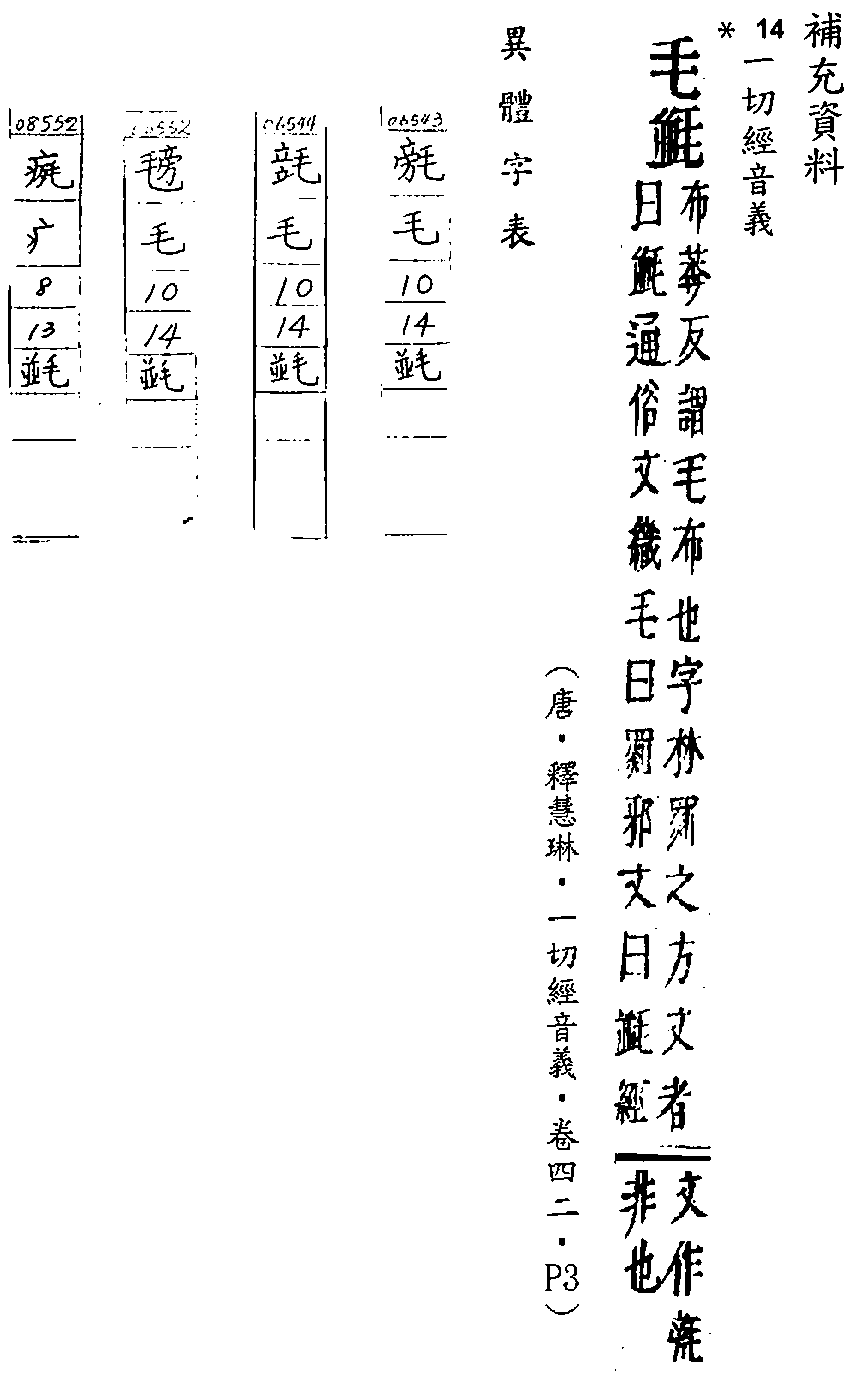 補充資料
* 14
一切經音義
毛
布莽反謂毛布也字林罽之方文者
曰通俗文織毛曰罽邪文曰經
文作
非也
(唐．釋慧琳．一切經音義．卷四二．P3)
異體字表
06543
毛
10
14
06544
毛
10
14
毛
10
14
08552
疒
8
13